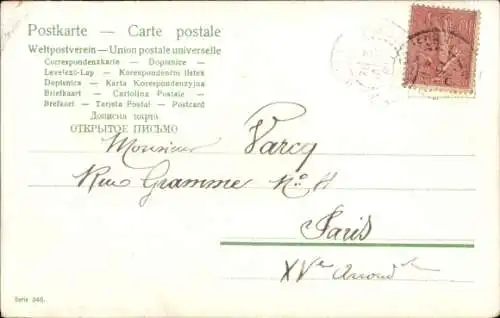 Postkarte — Carte postale
Weltpostverein — Union postale universelle
Correspondenzkarte — Dopisnice —
Levelező-Lap — Korespondenční lístek
Dopisnica — Karta Korespondencyjna
Briefkaart — Cartolina Postale —
Brefkort — Tarjeta Postal — Postcard
Дописна карта
ОТКРЫТОЕ ПИСЬМО
Monsieur Varcq
Rue Gramme No 11
Paris
XVe Arrondt
Serie 346.